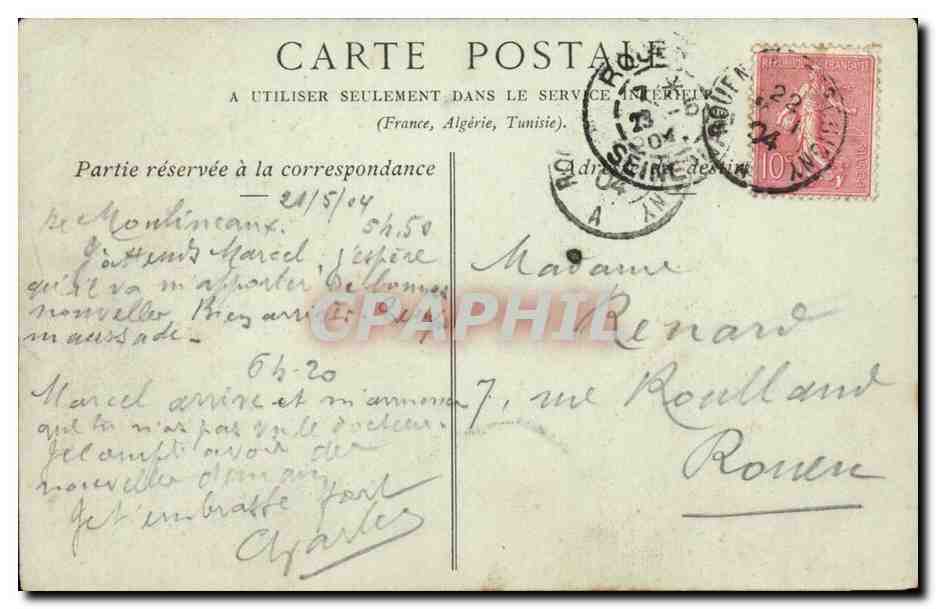 CARTE POSTALE
A UTILISER SEULEMENT DANS LE SERVICE INTÉRIEUR
(France, Algérie, Tunisie).
Partie réservée à la correspondance
21/5/04
Moulineaux. 5h.50
J'attends Marcel, j'espère
qu'il va m'apporter de bonnes
nouvelles Bien arrivé.
maussade.
6h-20
Marcel arrive et m'annonce
que tu n'as pas vu le docteur.
Je compte avoir des
nouvelles demain
Je t'embrasse fort
Charles
Madame
Renard
7, rue Roulland
Rouen
REPUBLIQUE FRANÇAISE
10
ROUEN
22
04
ROUEN
7
23
04
SEINE
04
A
CPAPHIL